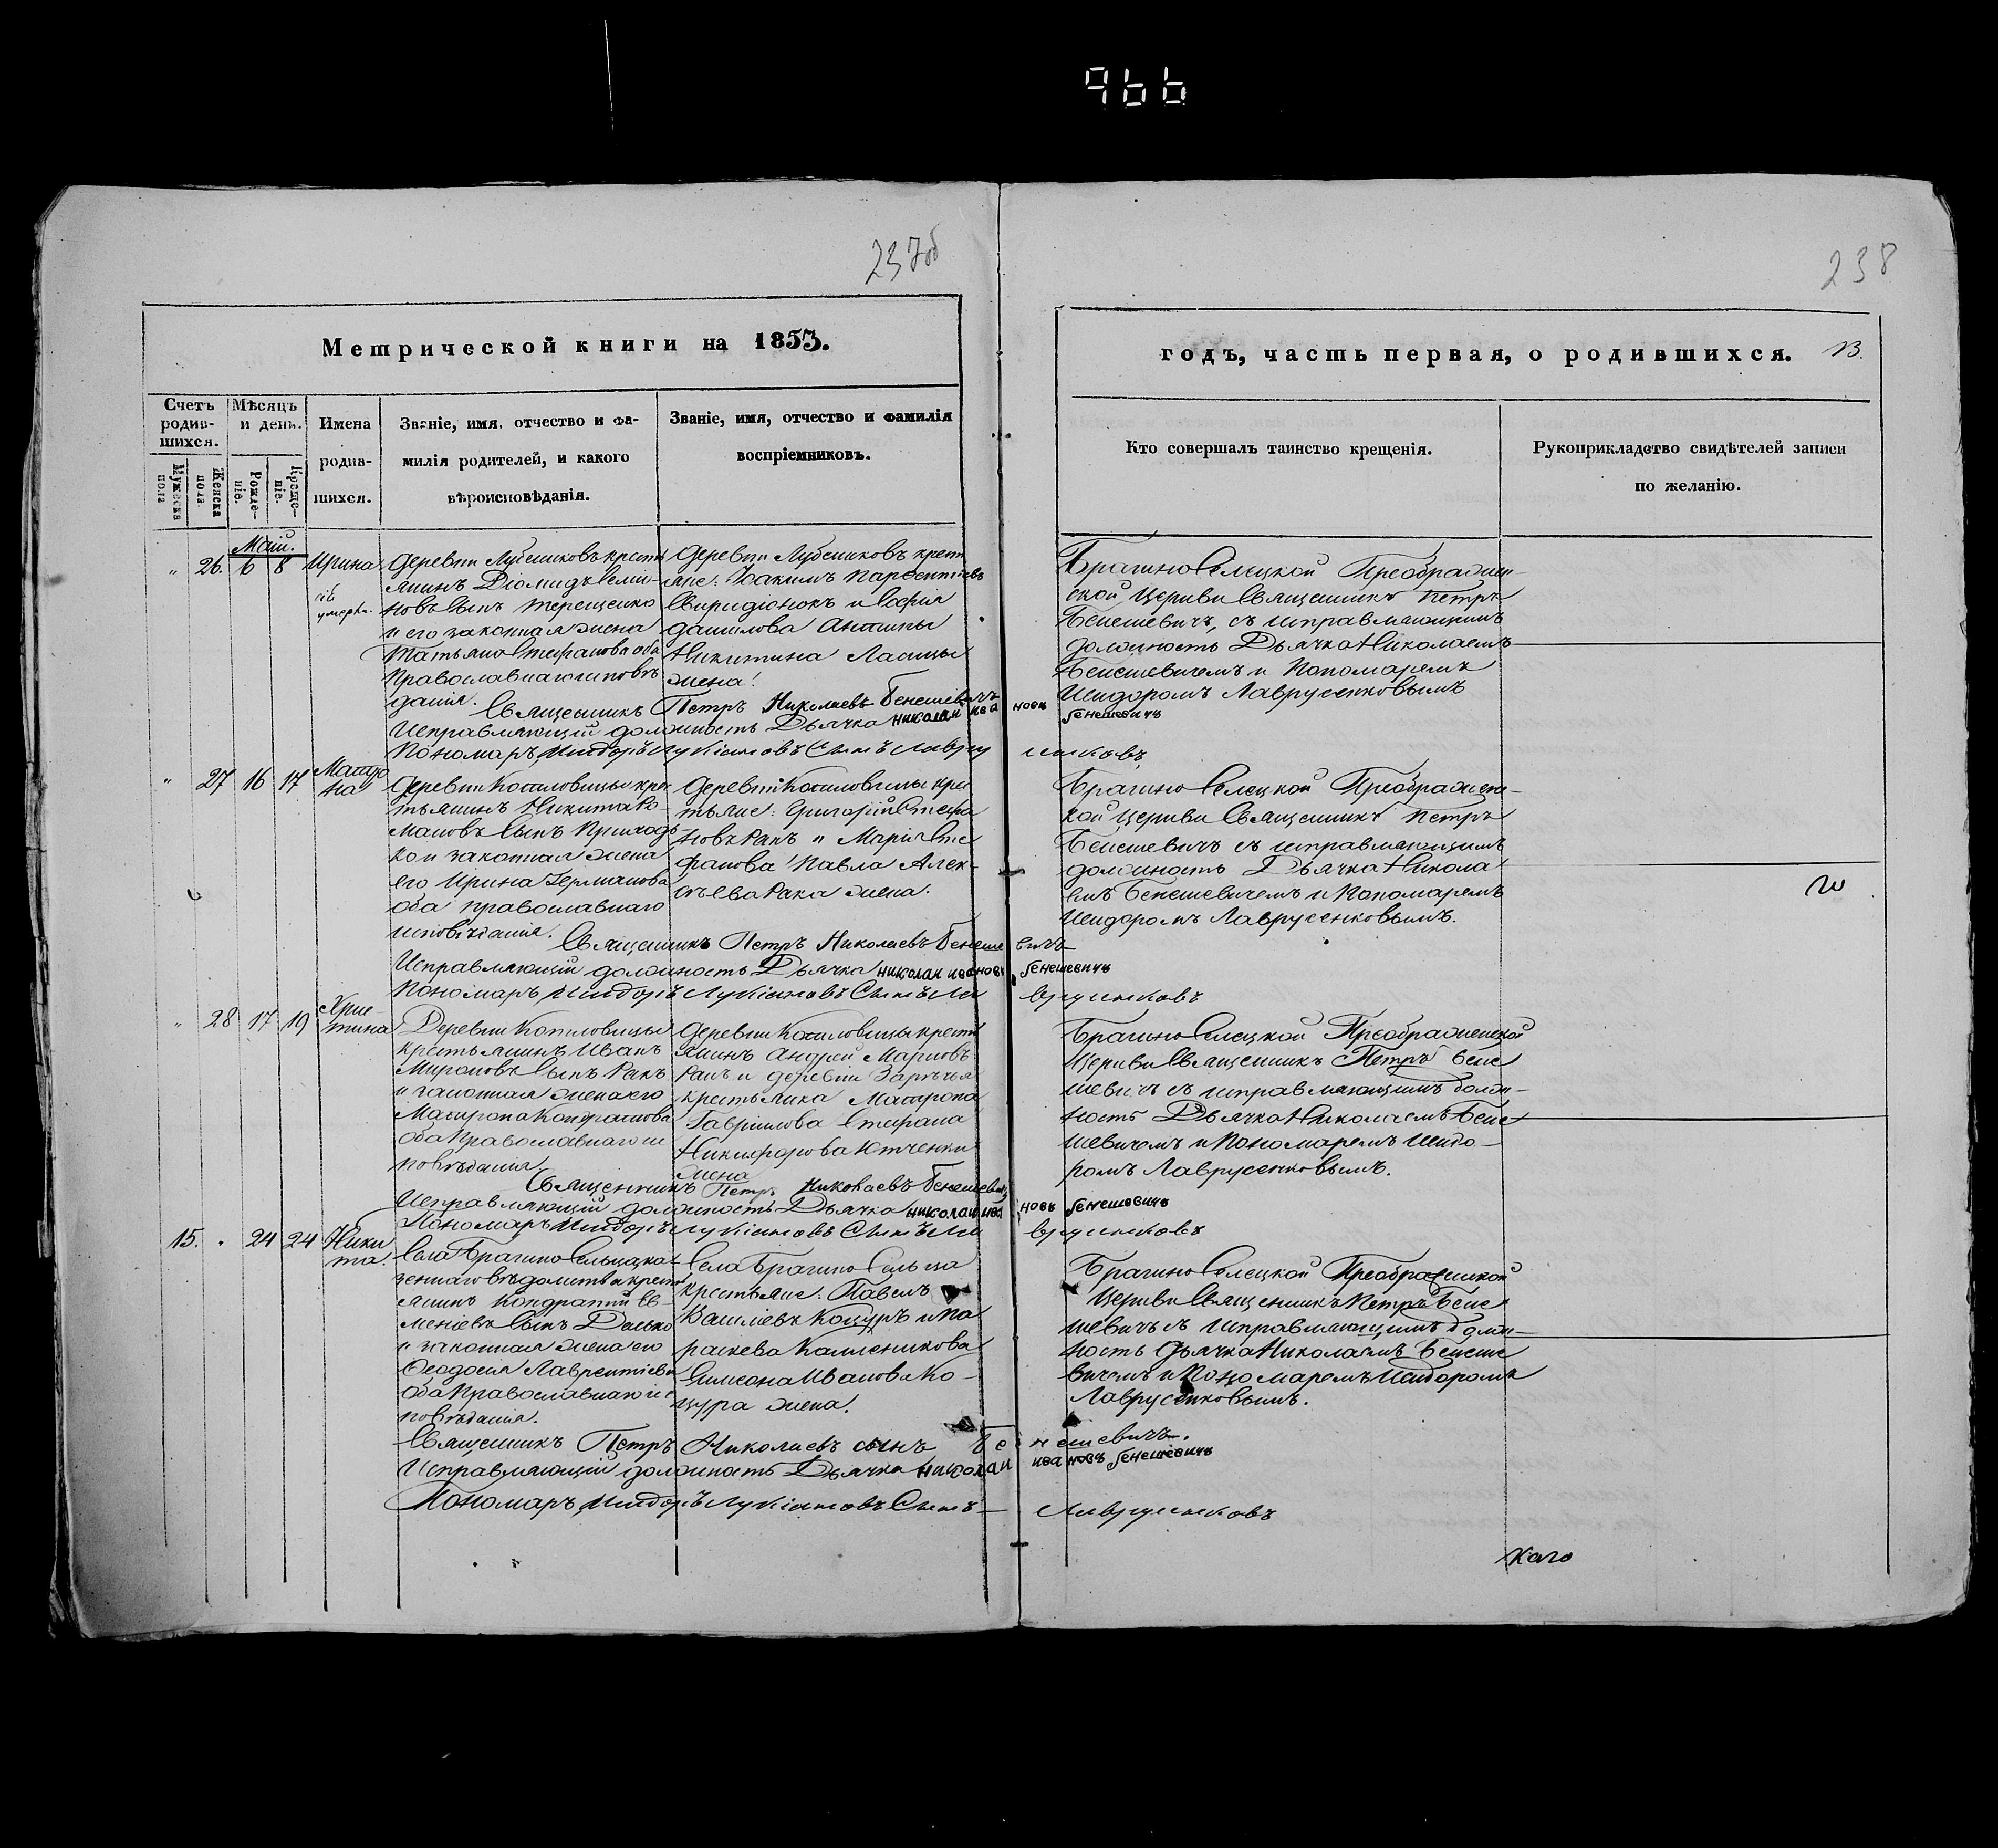 966
237об
238
Метрической книги на 1853.
годъ, часть первая, о родившихся. 13.
Счетъ родив-
шихся.
Мѣсяцъ
и день.
Имена
родив-
шихся.
Званіе, имя, отчество и фа-
милія родителей, и какого
вѣроисповѣданія.
Званіе, имя, отчество и фамилія
воспріемниковъ.
Кто совершалъ таинство крещенія.
Рукоприкладство свидѣтелей записи
по желанію.
Мужеска
пола
Женска
пола.
Рожде-
ніе.
Креще-
ніе.
Маій.
26. 6 8 Ирина
умерла.
новъ сынъ Терещенко
и его законная жена
Татьяна Стефанова оба
православнаго исповѣ
данія.
Свиридіонокъ и Софія
Данилова Антипы
Никитина
жена.
Брагино Селецкой Преображен-
ской Церкви Священникъ Петръ
Бенешевичъ, съ исправляющимъ
должность Дьячка Николаемъ
Бенешевичемъ и Пономаремъ
Исидоромъ Лаврусенковымъ
Священникъ Петръ Николаевъ Бенешевичъ
Исправляющій должность Дьячка николай ивановъ бенешевичъ
Пономарь Исидоръ Лукіановъ Сынъ Лаврусенковъ
27 16 17 Матро
на
Деревни Котловицы крес
тьянинъ Никита Ро-
мановъ сынъ Приход
ко и законная жена
его Ирина Германова
оба православнаго
исповѣданія.
Деревни Котловицы крес
тьяне: Григорій Стефа
новъ Ракъ и Марія Сте
фанова Павла Алек-
сѣева Рака жена.
Брагино Селецкой Преображенс-
кой Церкви Священникъ Петръ
Бенешевичъ съ исправляющимъ
должность Дьячка Никола
емъ Бенешевичемъ и Пономаремъ
Исидоромъ Лаврусенковымъ.
Священникъ Петръ Николаевъ Бенешевичъ
Исправляющій должность Дьячка николай ивановъ бенешевичъ
Пономарь Исидоръ Лукіановъ Сынъ Лаврусенковъ
28 17 19 Хрис-
тина
Деревни Котловицы
крестьянинъ Иванъ
Мироновъ сынъ Ракъ
и законная жена его
Матрона Кондратова
оба Православнаго ис
повѣданія
Деревни Котловицы кресть
янинъ Андрей Марковъ
Ракъ и деревни Зарѣчья
крестьянка Матрона
Гавріилова Стефана
Никифорова Ютченки
жена
Брагино Селецкой Преображенской
Церкви Священникъ Петръ Бене
шевичъ съ исправляющимъ долж-
ность Дьячка Николаемъ Бене
шевичемъ и Пономаремъ Исидо-
ромъ Лаврусенковымъ.
Священникъ Петръ Николаевъ Бенешевичъ
Исправляющій должность Дьячка николай ивановъ бенешевичъ
Пономарь Исидоръ Лукіановъ Сынъ Лаврусенковъ
15. 24 24 Ники
та.
Села Брагино Сельца ка
зеннаго вѣдомства кресть
янинъ Кондратій Ев-
меніевъ сынъ Дацько
и законная жена его
Феодосія Лаврентіева
оба Православнаго ис
повѣданія.
Села Брагино Сельца
крестьяне: Павелъ
Василіевъ Коцуръ и Па
раскева Каллиникова
Симеона Иванова Ко-
цура жена.
Брагино Селецкой Преображенской
Церкви Священникъ Петръ Бене
шевичъ съ исправляющимъ долж-
ность Дьячка Николаемъ Бенеше
вичемъ и Пономаремъ Исидоромъ
Лаврусенковымъ.
Священникъ Петръ Николаевъ сынъ Бенешевичъ.
Исправляющій должность Дьячка николай ивановъ бенешевичъ
Пономарь Исидоръ Лукіановъ Сынъ Лаврусенковъ